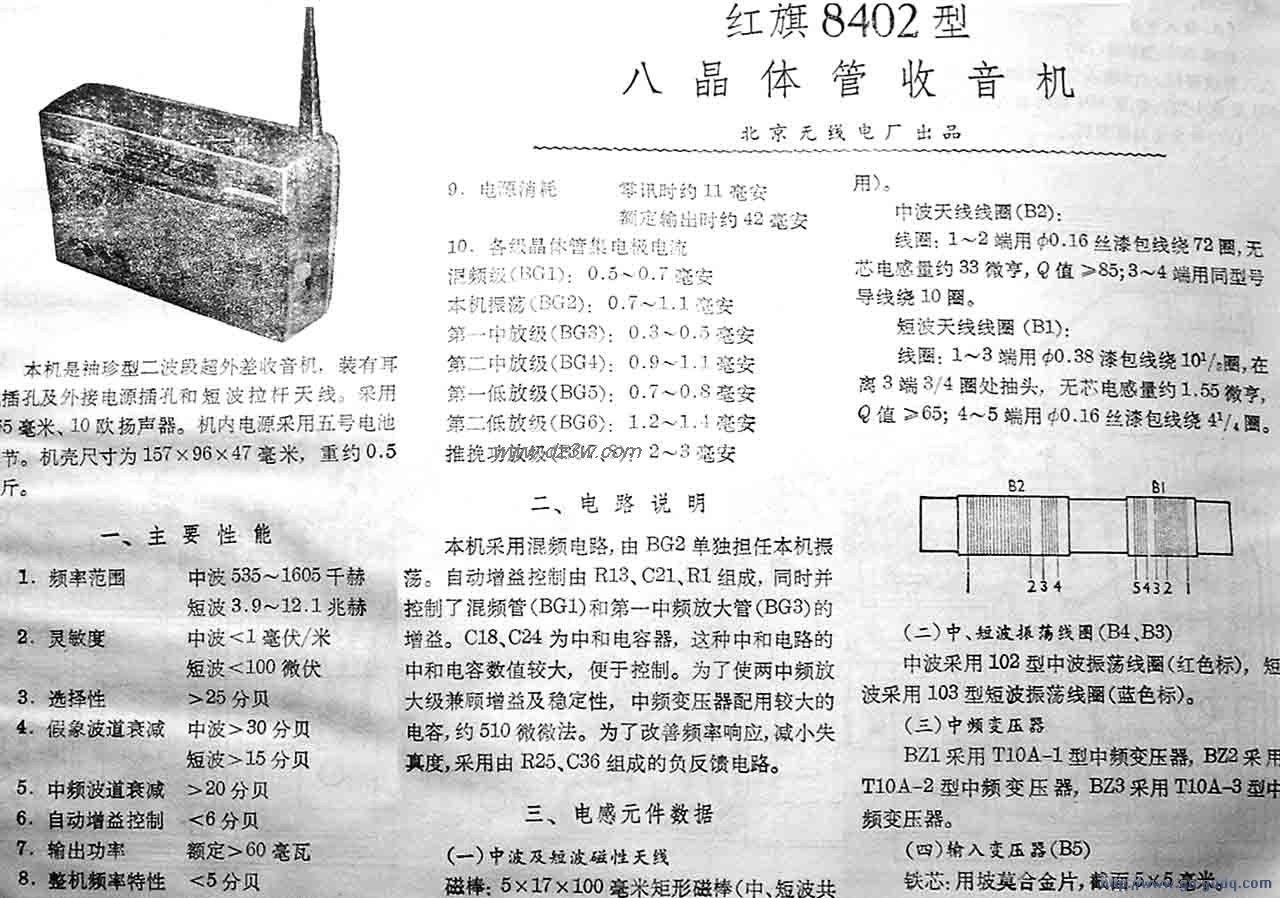 红旗8402型
八晶体管收音机
北京无线电厂出品
本机是袖珍型二波段超外差收音机，装有耳
插孔及外接电源插孔和短波拉杆天线。采用
65毫米、10欧扬声器。机内电源采用五号电池
节。机壳尺寸为157×96×47毫米，重约0.5
斤。
一、主要性能
1．频率范围 中波535～1605千赫
短波3.9～12.1兆赫
2．灵敏度 中波<1毫伏/米
短波<100微伏
3．选择性 >25分贝
4．假象波道衰减 中波>30分贝
短波>15分贝
5．中频波道衰减 >20分贝
6．自动增益控制 <6分贝
7．输出功率 额定>60毫瓦
8．整机频率特性 <5分贝
9．电源消耗 零讯时约11毫安
额定输出时约42毫安
10．各级晶体管集电极电流
混频级(BG1)：0.5～0.7毫安
本机振荡(BG2)：0.7～1.1毫安
第一中放级(BG3)：0.3～0.5毫安
第二中放级(BG4)：0.9～1.1毫安
第一低放级(BG5)：0.7～0.8毫安
第二低放级(BG6)：1.2～1.4毫安
推挽功放级 2～3毫安
二、电路说明
本机采用混频电路，由BG2单独担任本机振
荡。自动增益控制由R13、C21、R1组成，同时并
控制了混频管(BG1)和第一中频放大管(BG3)的
增益。C18、C24为中和电容器，这种中和电路的
中和电容数值较大，便于控制。为了使两中频放
大级兼顾增益及稳定性，中频变压器配用较大的
电容，约510微微法。为了改善频率响应，减小失
真度，采用由R25、C36组成的负反馈电路。
三、电感元件数据
(一)中波及短波磁性天线
磁棒：5×17×100毫米矩形磁棒(中、短波共
用)。
中波天线线圈(B2)：
线圈：1～2端用φ0.16丝漆包线绕72圈，无
芯电感量约33微亨，Q值≥85；3～4端用同型号
导线绕10圈。
短波天线线圈(B1)：
线圈：1～3端用φ0.38漆包线绕10¹/₂圈，在
离3端3/4圈处抽头，无芯电感量约1.55微亨，
Q值≥65；4～5端用φ0.16丝漆包线绕4¹/₄圈。
B2 B1
1 2 3 4 5 4 3 2 1
(二)中、短波振荡线圈(B4、B3)
中波采用102型中波振荡线圈(红色标)，短
波采用103型短波振荡线圈(蓝色标)。
(三)中频变压器
BZ1采用T10A-1型中频变压器，BZ2采用
T10A-2型中频变压器，BZ3采用T10A-3型中
频变压器。
(四)输入变压器(B5)
铁芯：用坡莫合金片，截面5×5毫米。